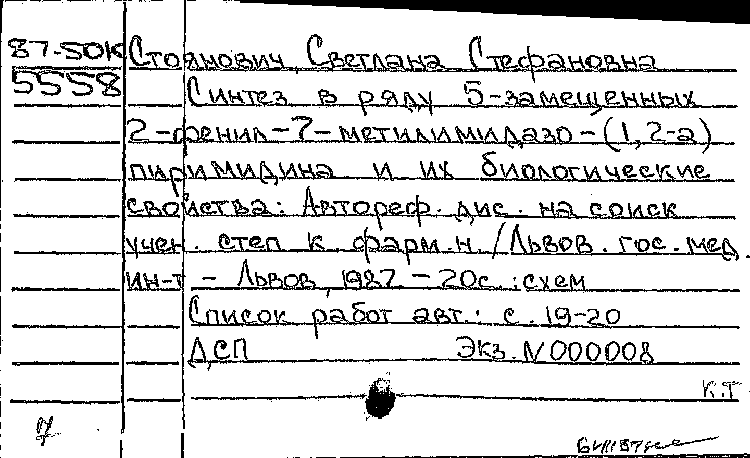 87-50К Стоянович, Светлана Стефановна
5558 Синтез в ряду 5-замещенных
2-фенил-7-метилимидазо-(1,2-а)
пиримидина и их биологические
свойства: Автореф. дис. на соиск
учен. степ к. фарм.н. / Львов. гос. мед.
ин-т - Львов, 1987. - 20с. : схем
Список работ авт.: с. 19-20
ДСП Экз. N 000008
К.Т
7